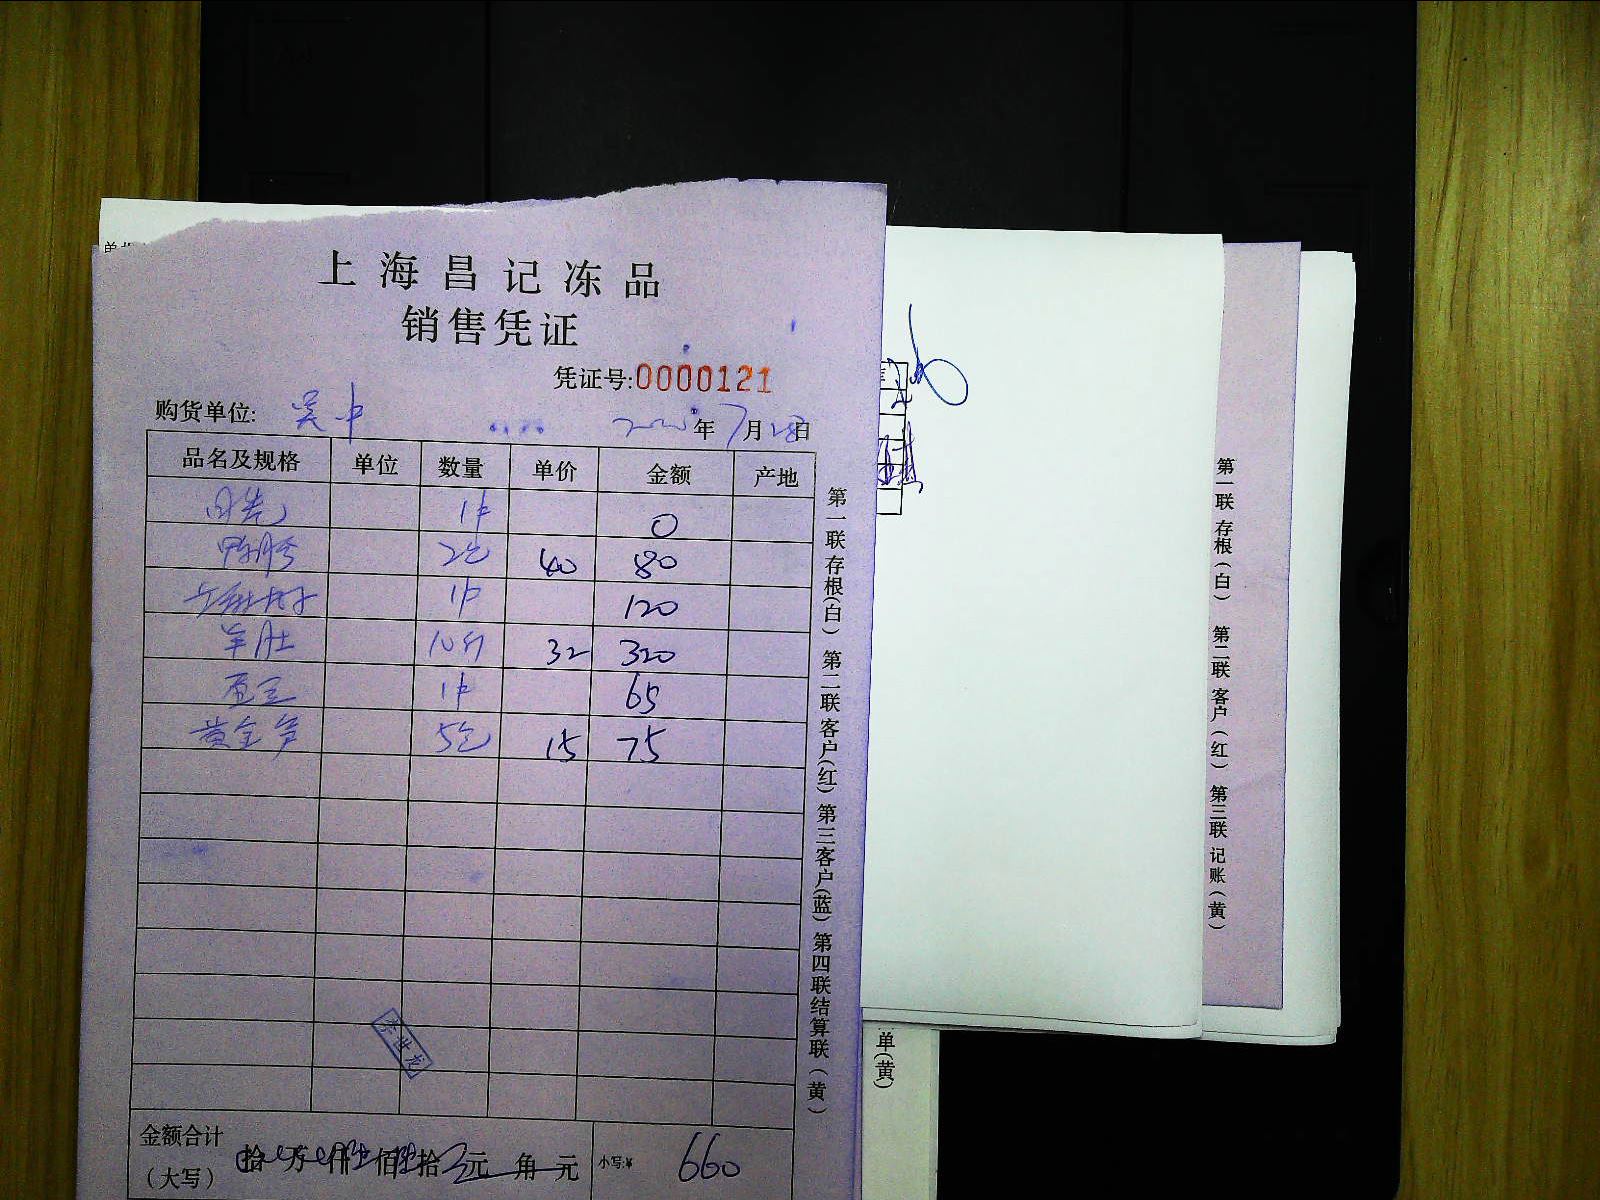 单
上海昌记冻品
销售凭证
凭证号:0000121
购货单位: 吴中 年7月28日
品名及规格 单位 数量 单价 金额 产地
1件 0
鸭胗 2包 40 80
1件 120
羊肚 10斤 32 320
1件 65
黄金 5包 15 75
金额合计
(大写) 拾 万 仟 佰 拾 元 角 元 小写:¥ 660
第一联存根(白) 第二联客户(红) 第三客户(蓝) 第四联结算联(黄)
单(黄)
第一联 存根(白) 第二联 客户(红) 第三联 记账(黄)